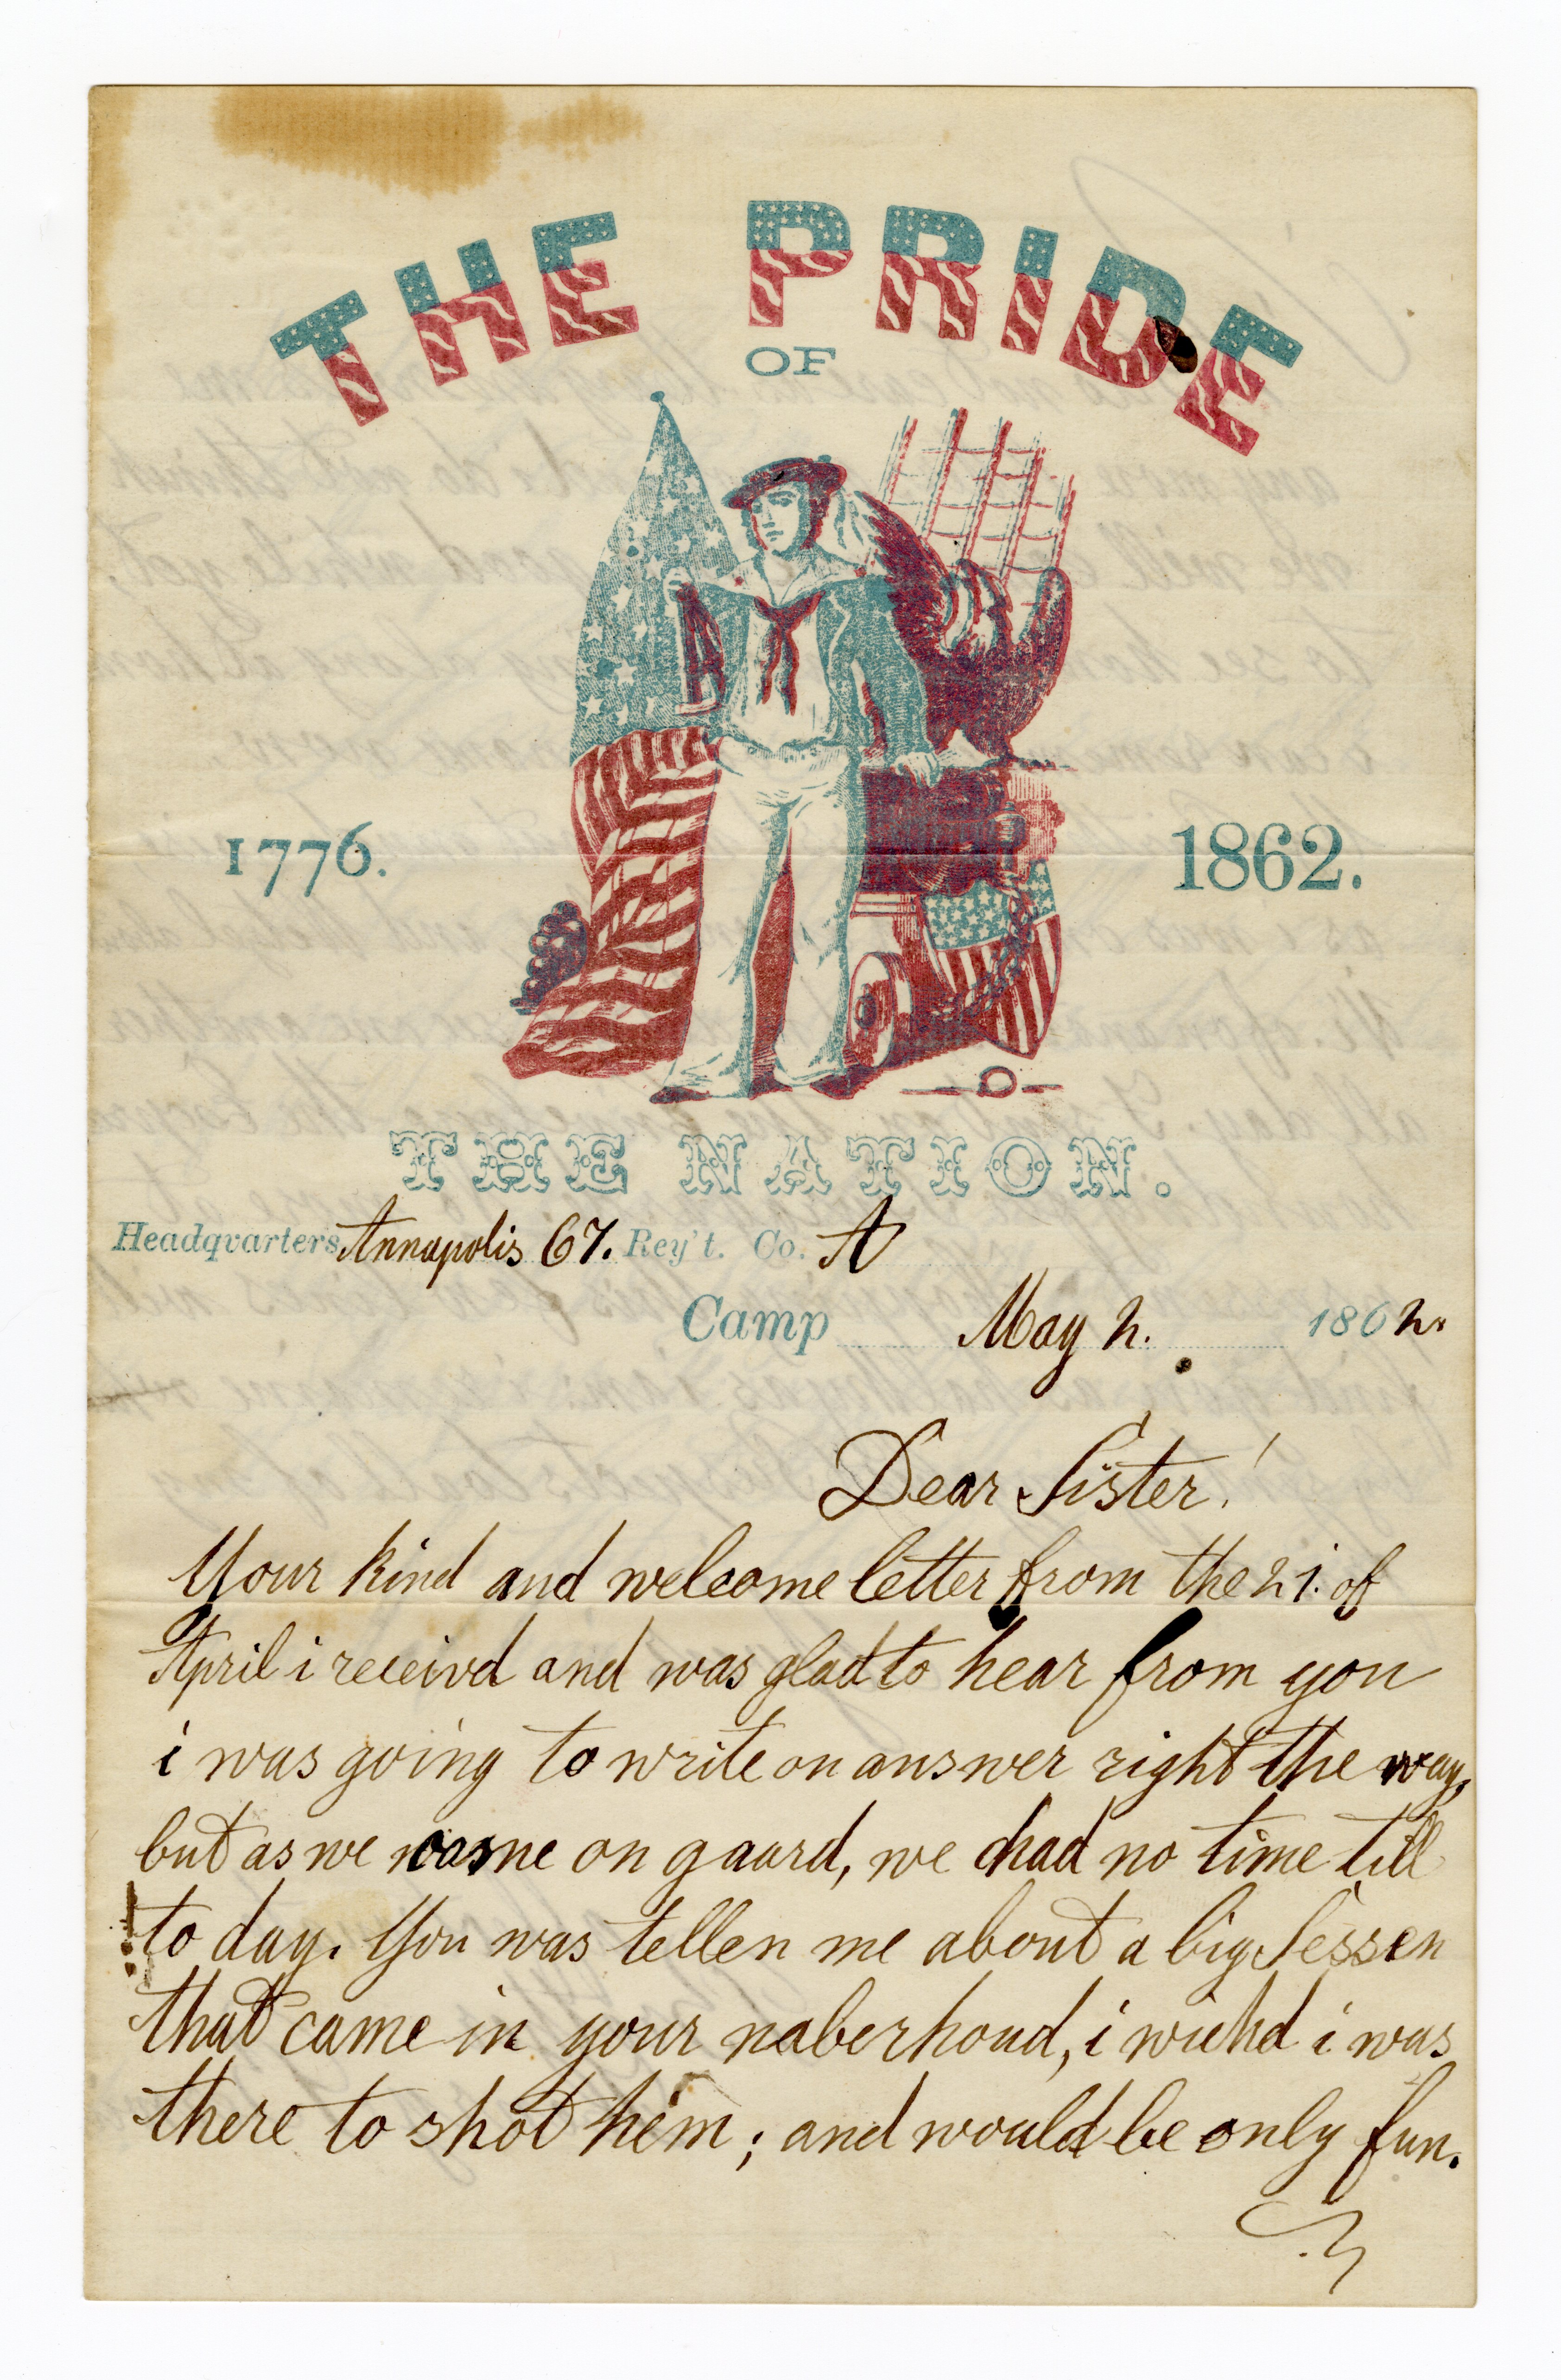 THE PRIDE
OF
1776.
1862.
THE NATION.
Headquarters Annapolis 67. Reg't. Co. A
Camp May 2. 1862.
Dear Sister!
Your kind and welcome letter from the 21. of
April i receivd and was glad to hear from you
i was going to write on answer right the way,
but as we came on gaard, we had no time till
to day. You was tellen me about a big Sessen
that came in your naberhoud, i wichd i was
there to shot him; and would be only fun.